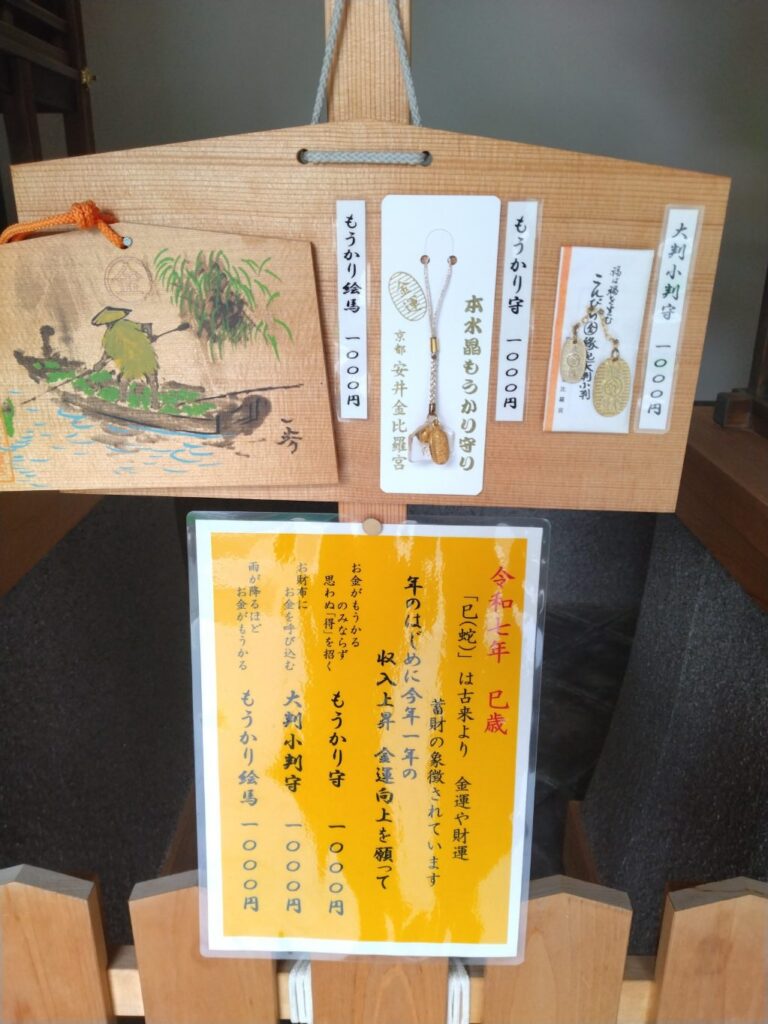 大判小判守　一〇〇〇円
福は福を生む
こんぴら因縁の大判小判
もうかり守　一〇〇〇円
本水晶もうかり守り
金運
京都　安井金比羅宮
もうかり絵馬　一〇〇〇円
令和七年　巳歳
「巳（蛇）」は古来より　金運や財運
蓄財の象徴されています
年のはじめに今年一年の
収入上昇　金運向上を願って
お金がもうかる
のみならず
思わぬ「得」を招く
もうかり守　一〇〇〇円
お財布に
お金を呼び込む
大判小判守　一〇〇〇円
雨が降るほど
お金がもうかる
もうかり絵馬　一〇〇〇円